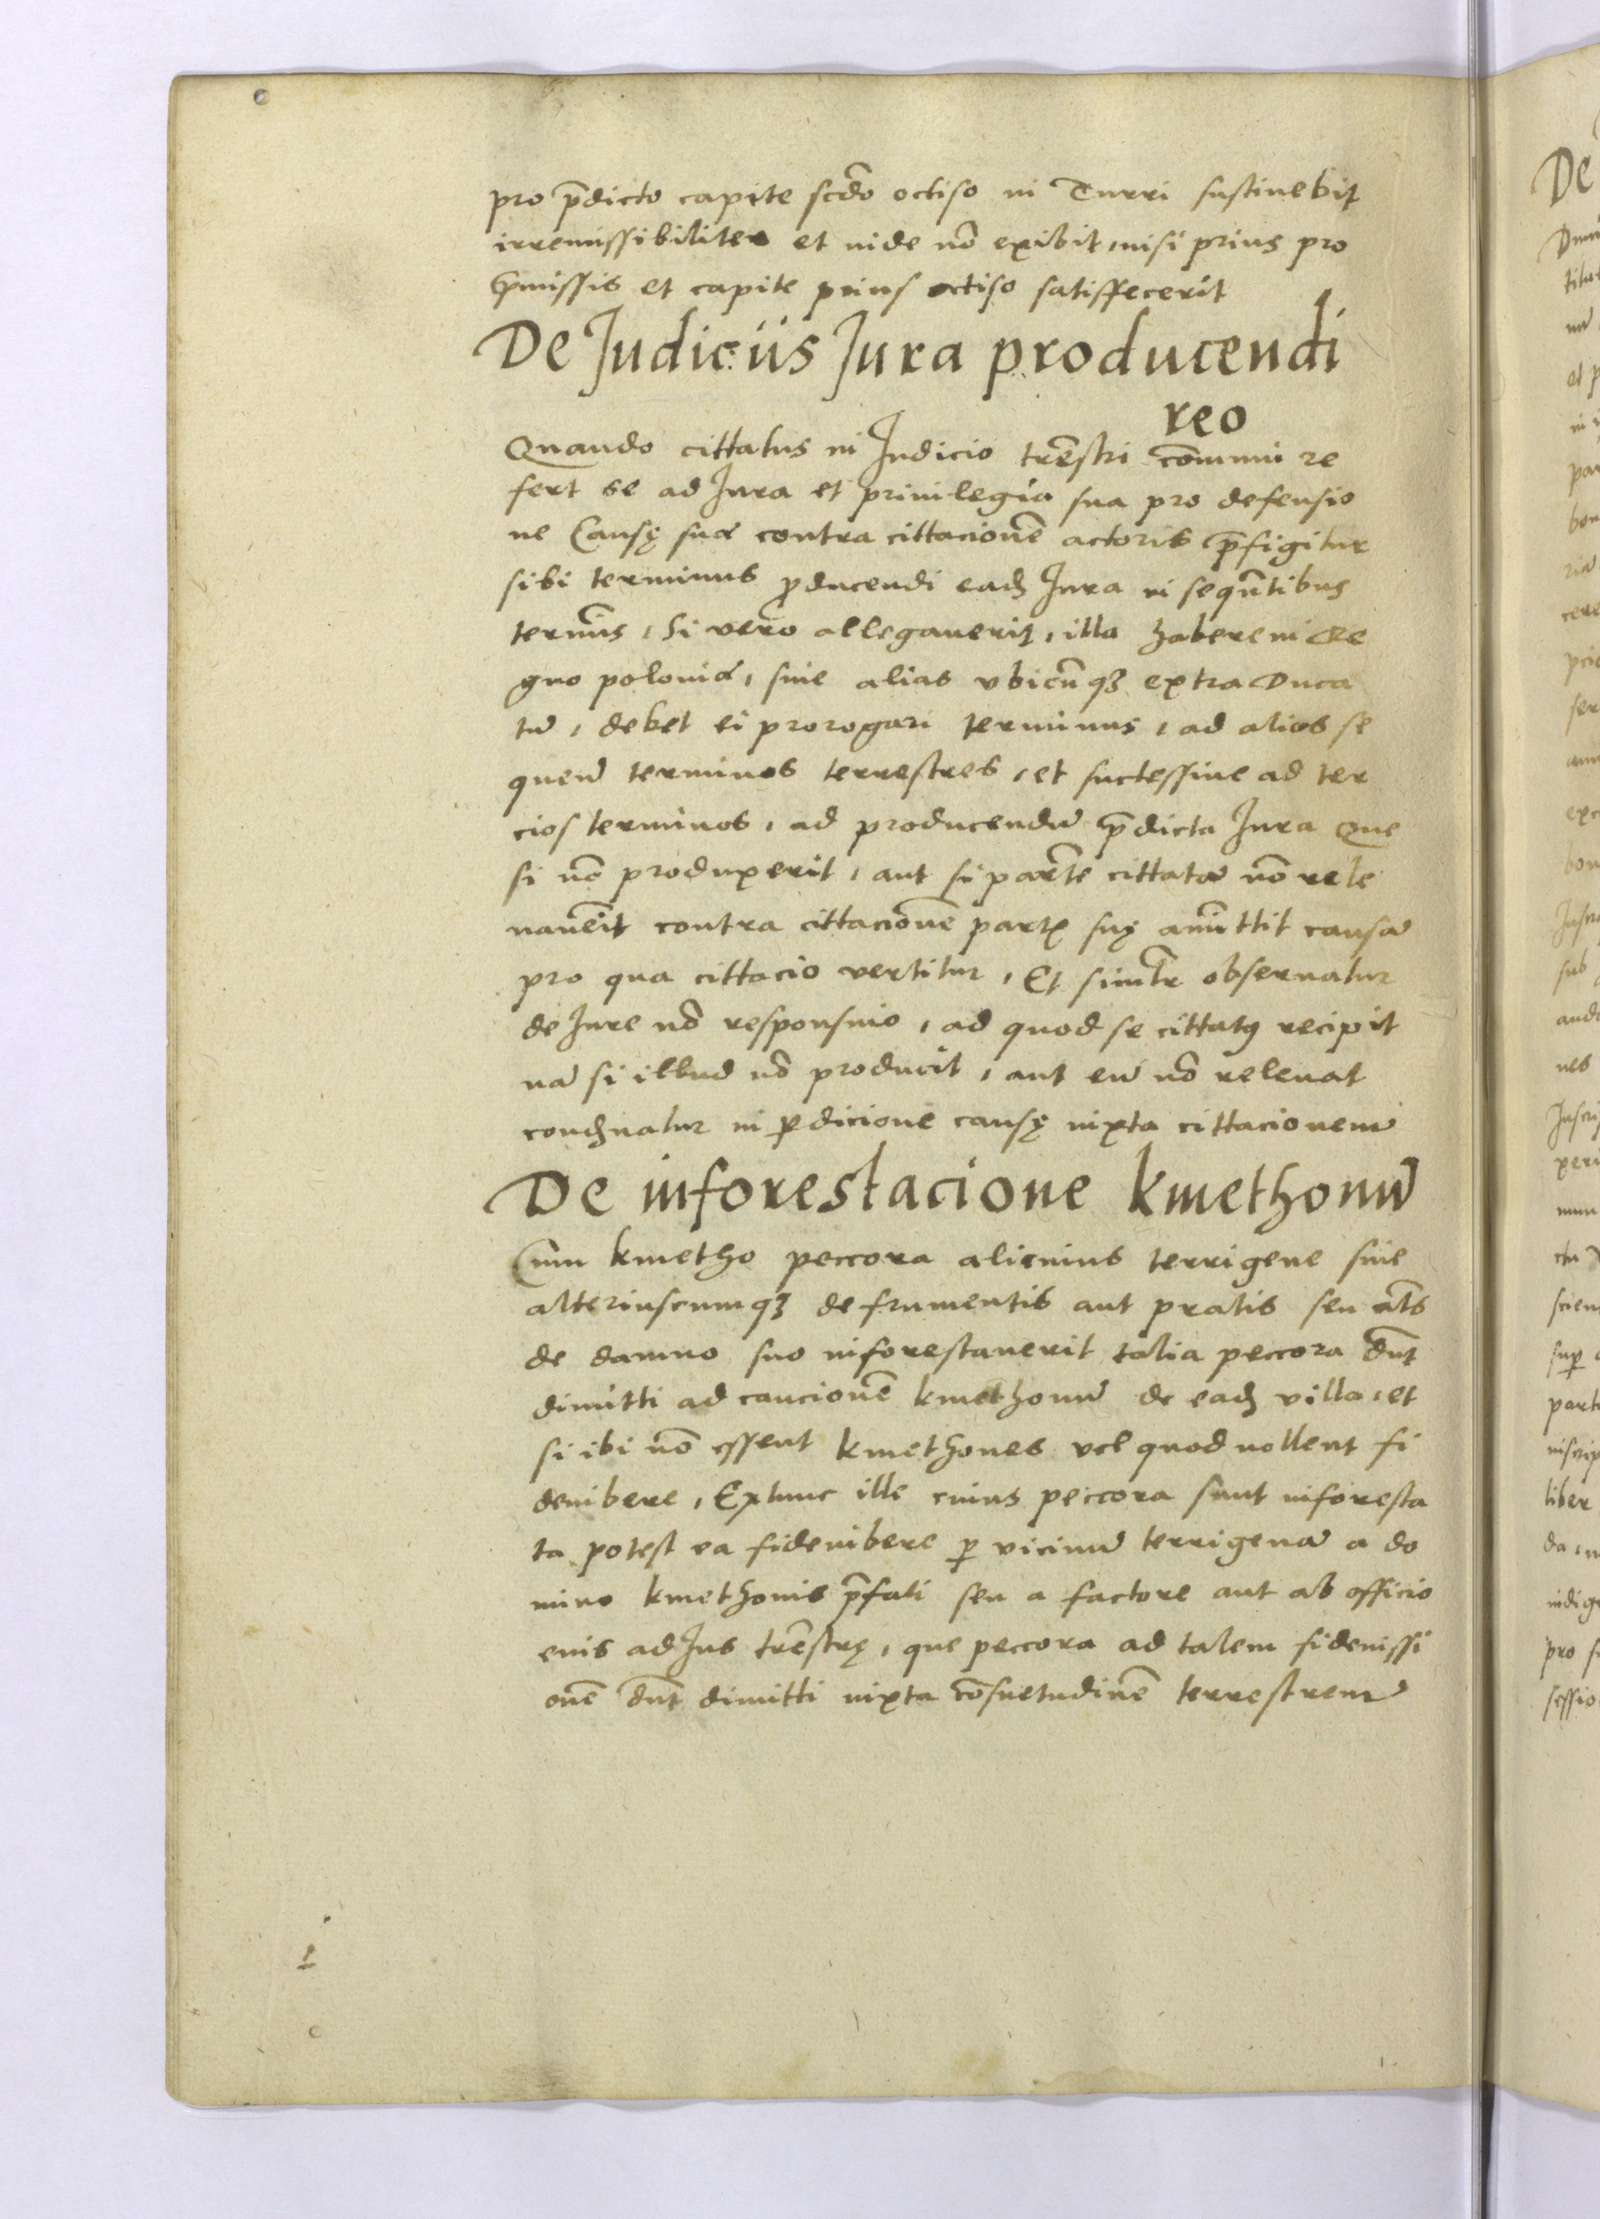 pro p̄dicto capite scd̄o occiso in Turri sustinebit
irremissibiliter et inde nō exibit, nisi prius pro
p̄missis et capite prius occiso satisffecerit
De Judiciis Jura producendi
reo
Quando cittatus in Judicio trēstri cōmuni re
fert se ad Jura et priuilegia sua pro defensio
ne Causę suæ contra cittacionē actoris p̄figitur
sibi terminus ꝓducendi eadꝫ Jura in sequētibus
termīs, Si vero allegauerit, illa habere in Re
gno poloniæ, siue alias vbicūqꝫ extra Duca
tū, debet ei prorogari terminus, ad alios se
quen̄ terminos terrestres, et successiue ad ter
cios terminos, ad producendū p̄dicta Jura Que
si nō produxerit, aut si partē cittatā nō rele
nauēit contra cittacionē partꝭ suę amīttit causā
pro qua cittacio vertitur, Et simlr̄ obseruatur
de Jure nō responsiuo, ad quod se cittatꝰ recipit
nā si illud nō producit, aut eū nō releuat
condꝫnatur in ꝑdicione causę iuxta cittacionem
De inforestacione kmethonū
Cum kmetho peccora alicuius terrigene siue
alteriuscumqꝫ de frumentis aut pratis seu al̄s
de damno suo inforestauerit talia peccora dn̄t
dimitti ad caucionē kmethonū de eadꝫ villa, et
si ibi nō essent kmethones vel quod nollent fi
deiubere, Extunc ille cuius peccora sunt inforesta
ta potest ea fideiubere ꝑ vicinū terrigenā a do
mino kmethonis p̄fati seu a factore aut ab officio
euis ad Jus trēstrę, que peccora ad talem fideiussi
onē dn̄t dimitti iuxta cōsuetudinē terrestrem